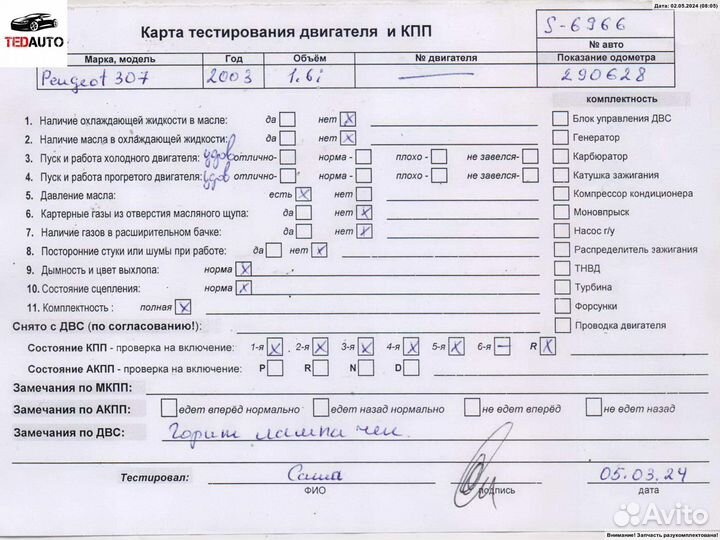 Дата: 02.05.2024 (08:05)
TEDAUTO
Карта тестирования двигателя и КПП
S-6966
№ авто
Марка, модель Год Объём № двигателя Показание одометра
Peugeot 307 2003 1.6i 290628
комплектность
1. Наличие охлаждающей жидкости в масле: да нет X Блок управления ДВС
2. Наличие масла в охлаждающей жидкости: да нет X Генератор
3. Пуск и работа холодного двигателя: удов отлично- норма - плохо - не завелся- Карбюратор
4. Пуск и работа прогретого двигателя: удов отлично- норма - плохо - не завелся- Катушка зажигания
5. Давление масла: есть X нет Компрессор кондиционера
6. Картерные газы из отверстия масляного щупа: да нет X Моновпрыск
7. Наличие газов в расширительном бачке: да нет X Насос г/у
8. Посторонние стуки или шумы при работе: да нет X Распределитель зажигания
9. Дымность и цвет выхлопа: норма X ТНВД
10. Состояние сцепления: норма X Турбина
11. Комплектность : полная X Форсунки
Снято с ДВС (по согласованию!): Проводка двигателя
Состояние КПП - проверка на включение: 1-я X 2-я X 3-я X 4-я X 5-я X 6-я — R X
Состояние АКПП - проверка на включение: P R N D
Замечания по МКПП:
Замечания по АКПП: едет вперёд нормально едет назад нормально не едет вперёд не едет назад
Замечания по ДВС: Горит лампа чек.
Тестировал: Саша 05.03.24
ФИО подпись дата
Avito
Внимание! Запчасть разукомплектована!